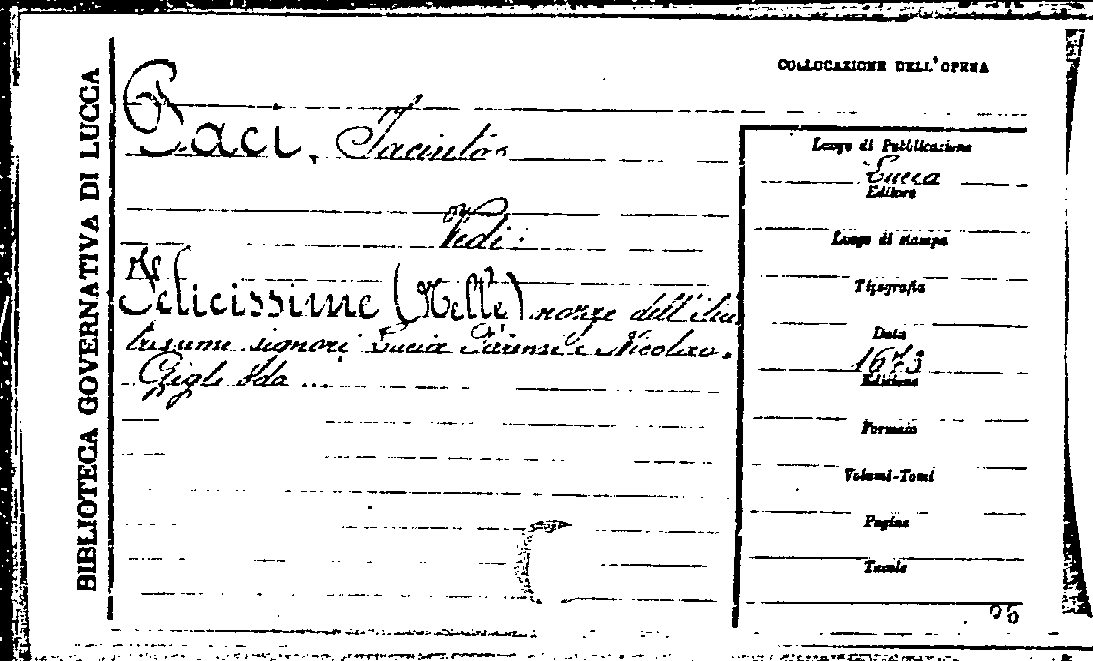 BIBLIOTECA GOVERNATIVA DI LUCCA
COLLOCAZIONE DELL'OPERA
Paci, Jacinto
Vedi:
Felicissime (Nelle) nozze dell'illu
trissime signori Lucia Parensi e Nicolao
Gigli Oda ...
Luogo di Pubblicazione
Lucca
Editore
Luogo di stampa
Tipografia
Data
1673
Edizione
Formato
Volumi-Tomi
Pagine
Tavole